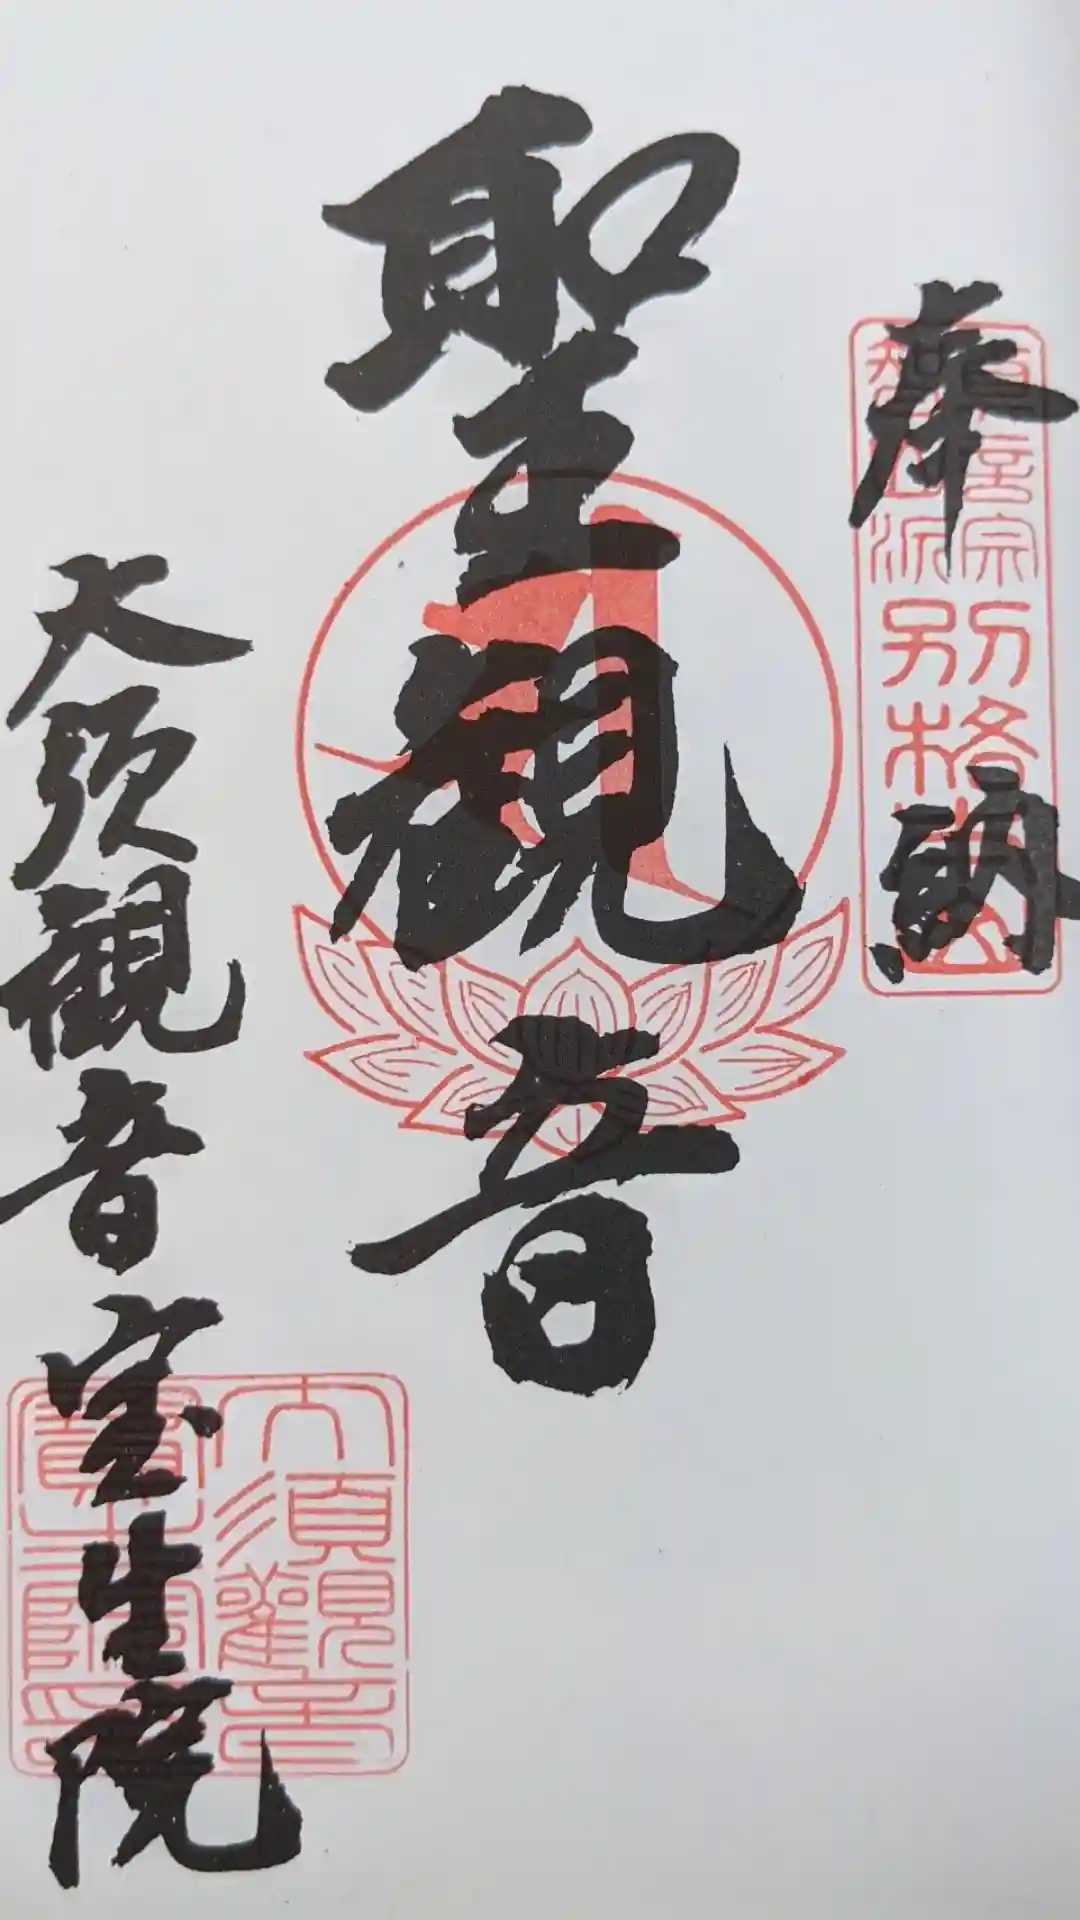 奉納
真言宗
智山派
別格本山
聖観音
大須観音宝生院
大須觀音
寶生院印